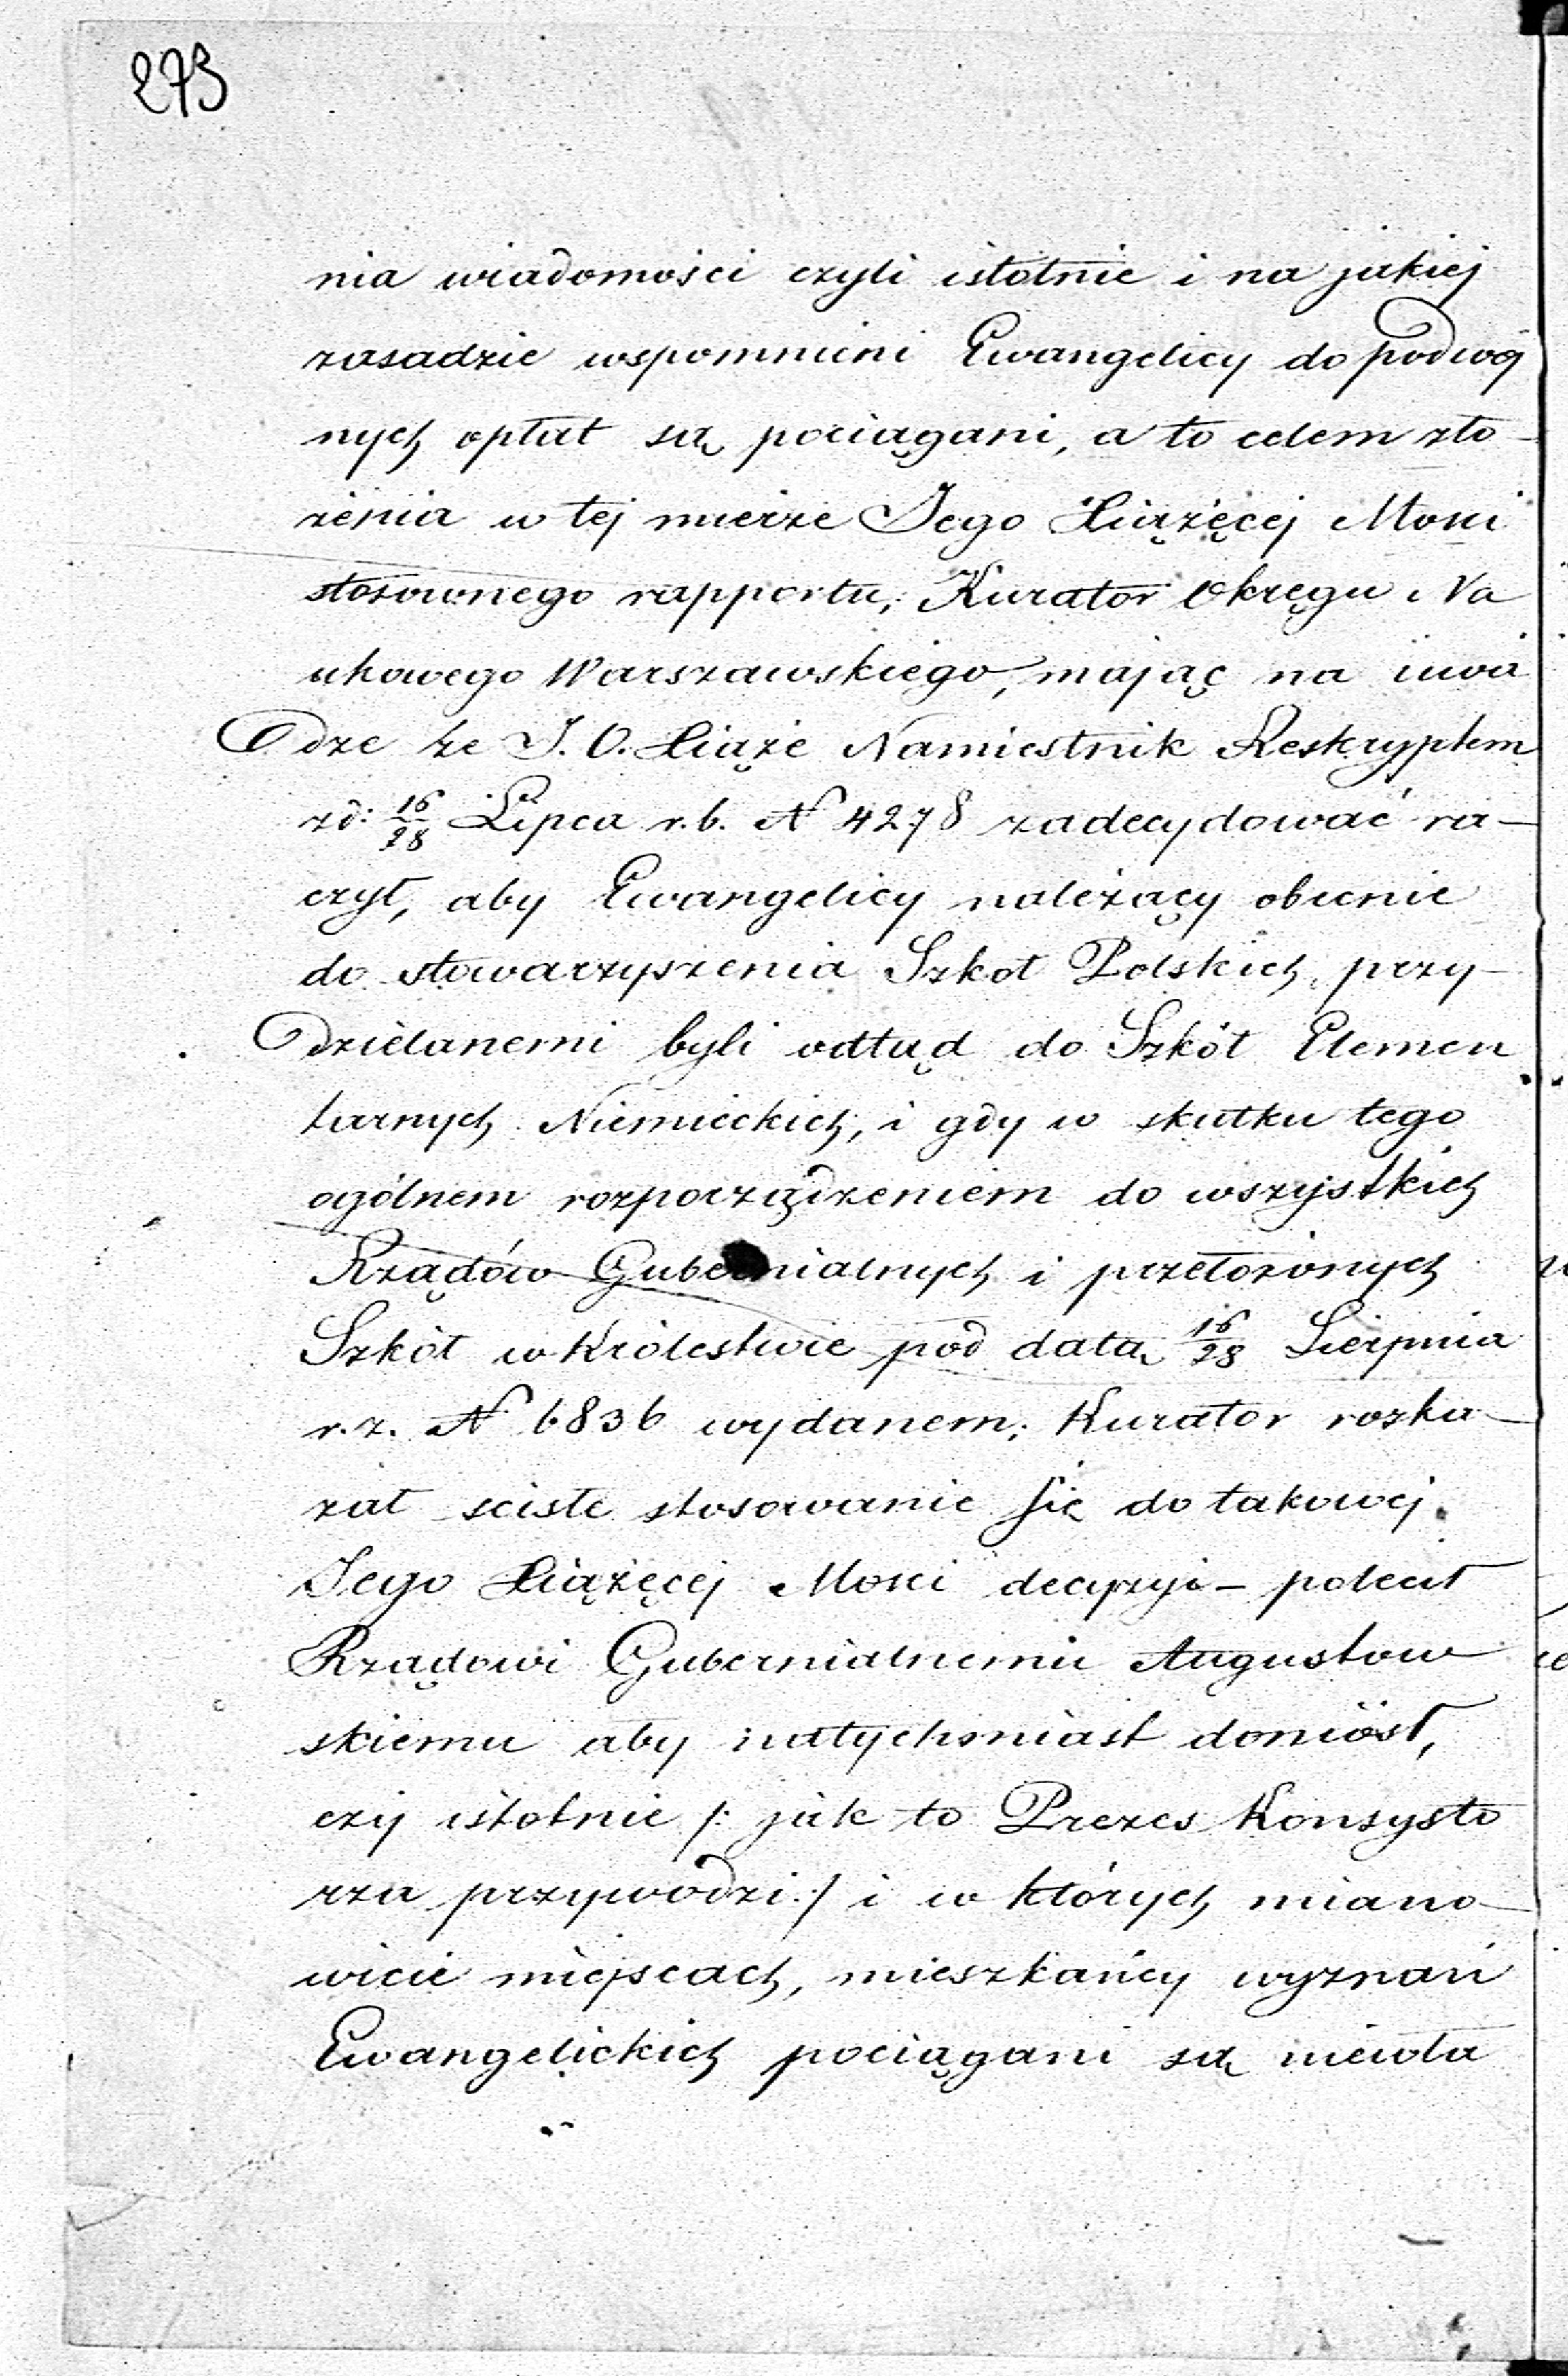 273
nia wiadomości czyli istotnie i na jakiej
zasadzie wspomnieni Ewangelicy do podwój
nych opłat są pociągani, a to celem zło-
żenia w tej mierze Jego Xiążęcej Mości
stosownego rapportu, Kurator Okręgu Na
ukowego Warszawskiego, mając na uwa
dze że J. O. Xiąże Namiestnik Reskryptem
z d: 16/28 Lipca r.b. N 4278 zadecydować ra-
czył, aby Ewangelicy należący obecnie
do stowarzyszenia Szkół Polskich, przy-
dzielanemi byli odtąd do Szkół Elemen
tarnych Niemieckich, i gdy w skutku tego
ogólnem rozporządzeniem do wszystkich
Rządów Gubernialnych i przełożonych
Szkół w Królestwie pod datą 16/28 Sierpnia
r.z. N 6836 wydanem, Kurator rozka-
zał sciste stosowanie się do takowej
Jego Xiążęcej Mości decyzyi – polecił
Rządowi Gubernialnemu Augustow
skiemu aby natychmiast doniósł,
czy istotnie /: jak to Prezes Konsysto
rza przywodzi :/ i w których miano-
wicie miejscach, mieszkańcy wyznań
Ewangelickich pociągani są